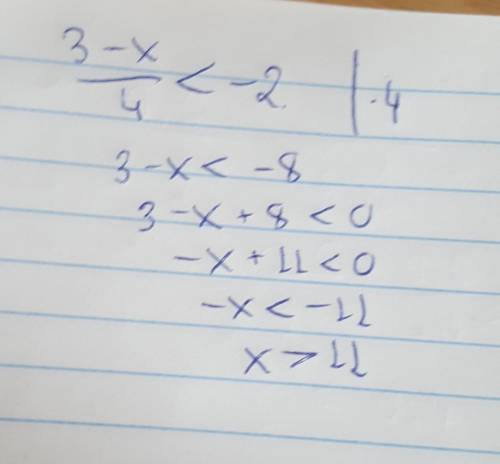 (3-x)/4 < -2 | ·4
3-x < -8
3-x+8 < 0
-x+11 < 0
-x < -11
x > 11